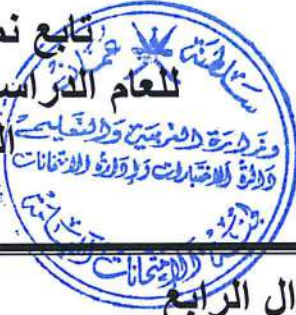 تابع نم
للعام الدراسي
ال
سلطنة عمان
وزارة التربية والتعليم
دائرة الاختبارات وإدارة الامتحانات
الامتحانات
ال الرابع